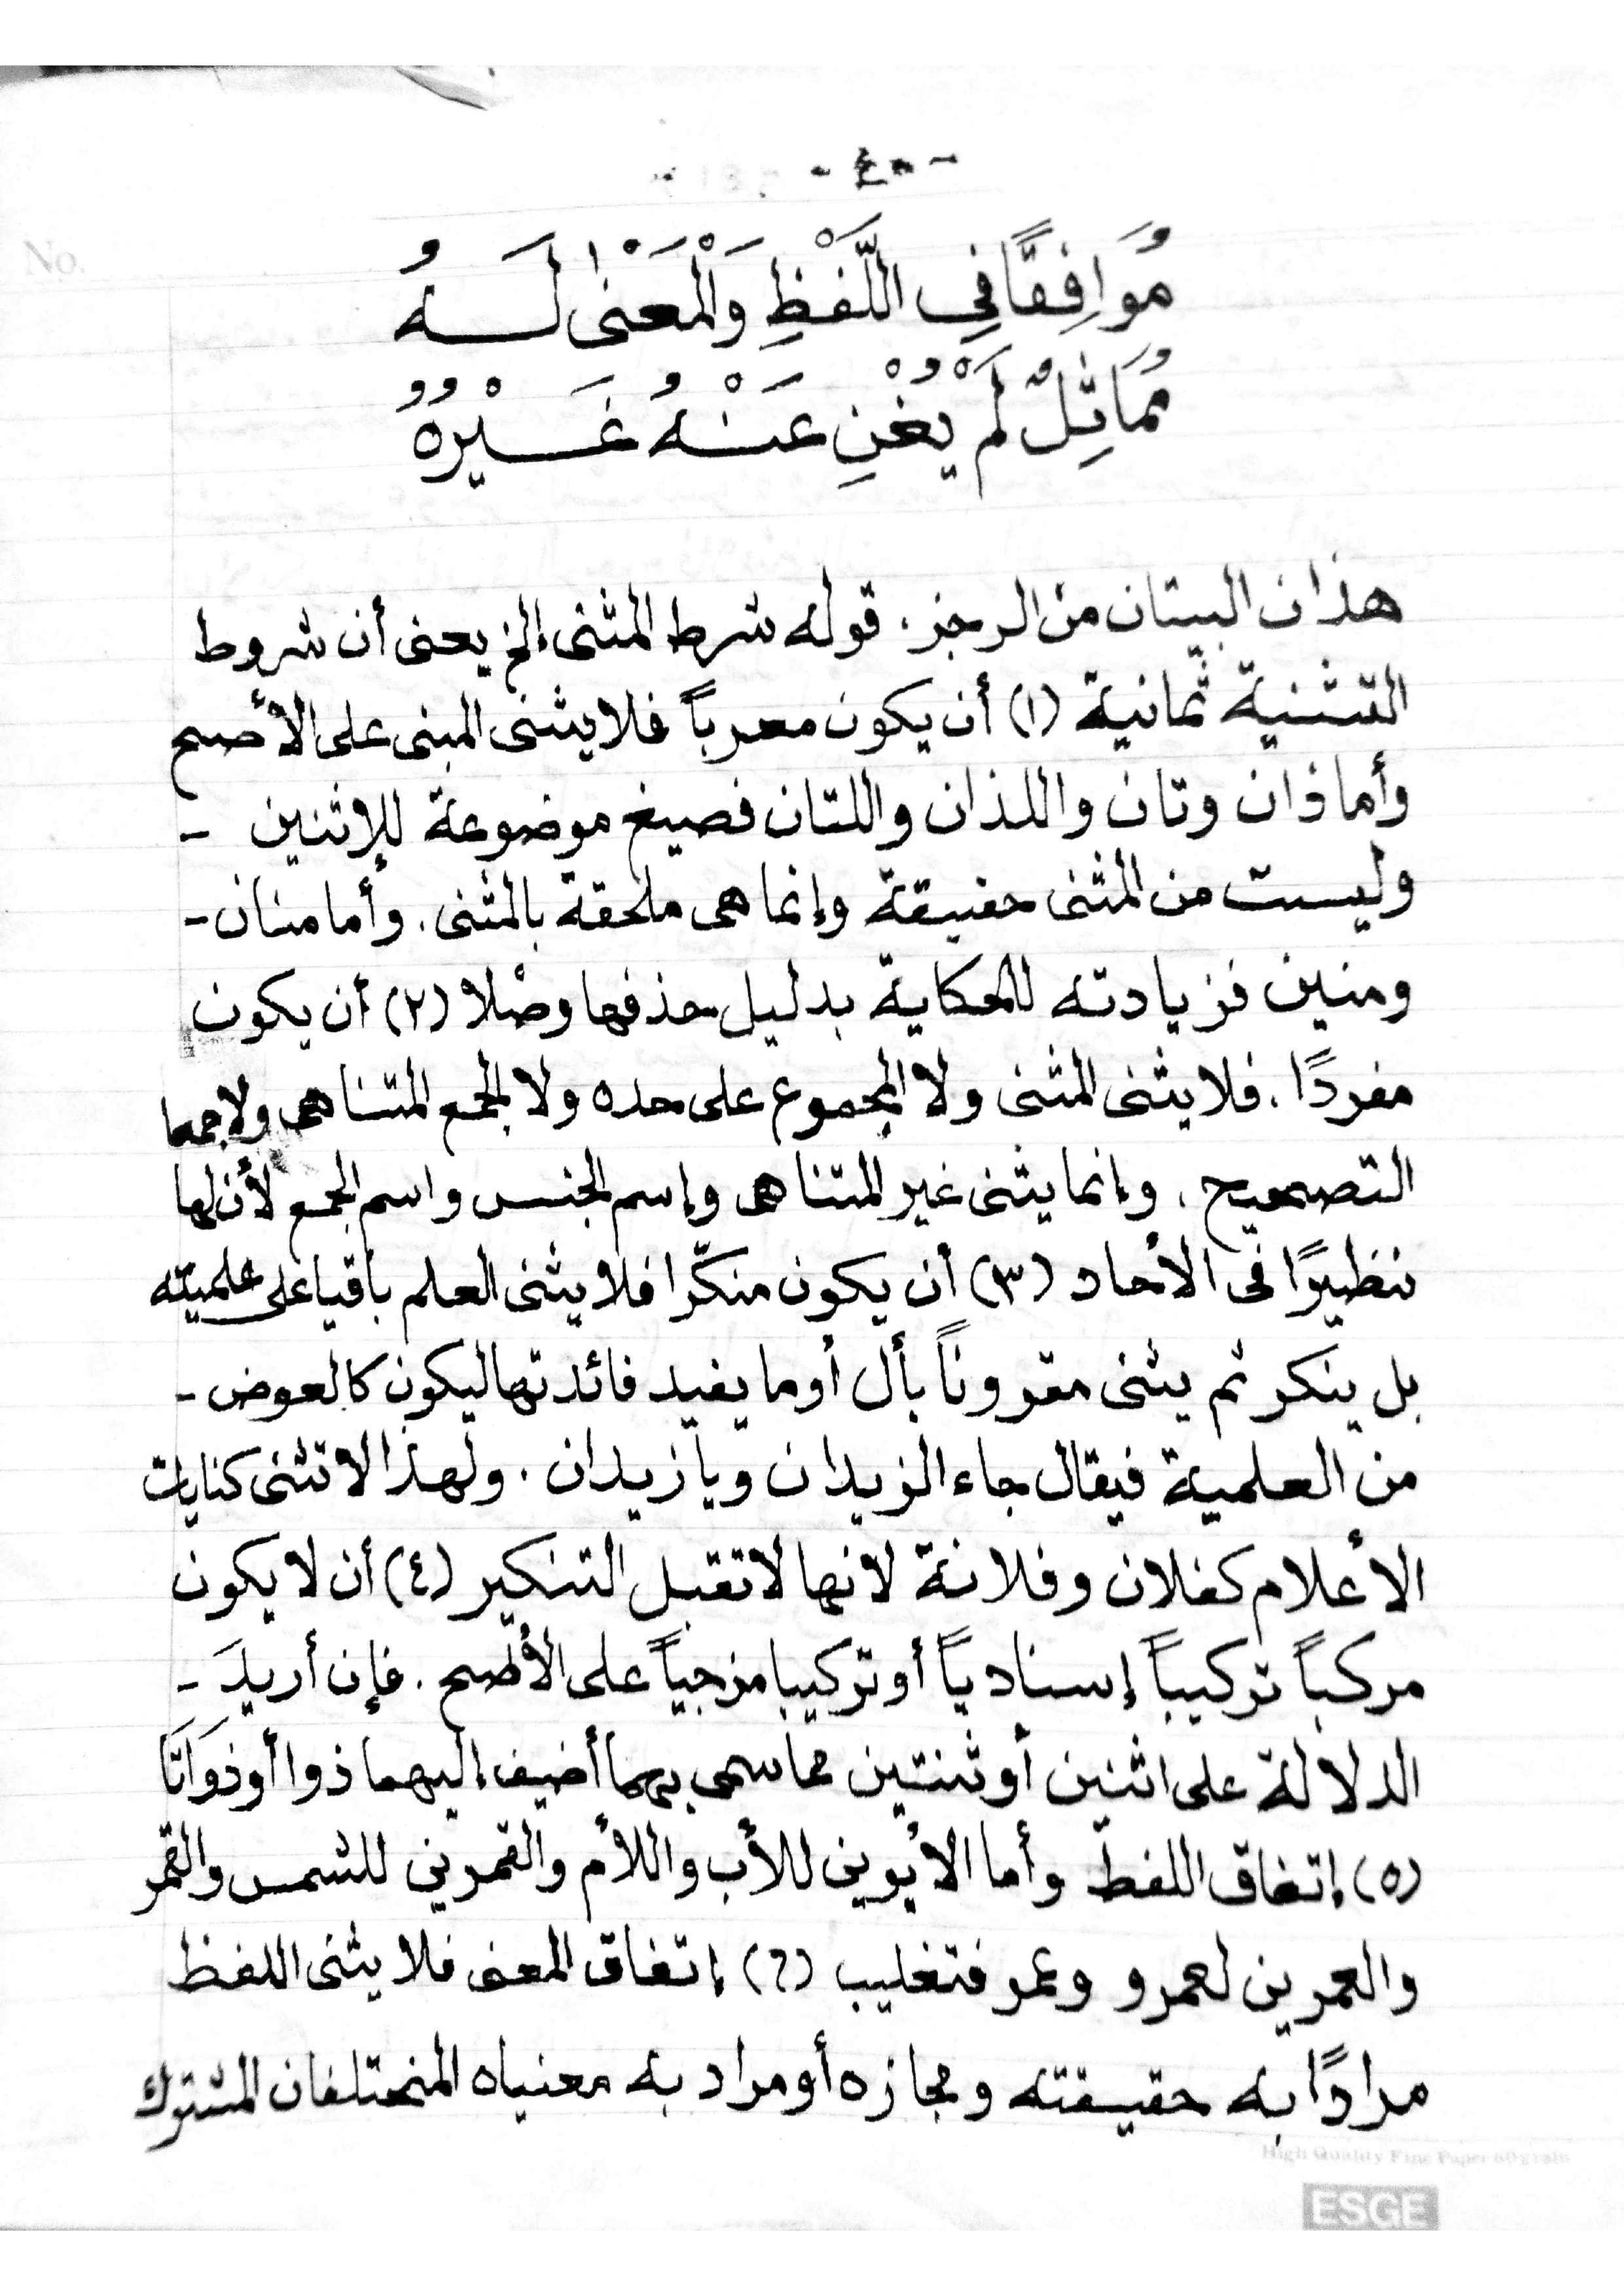 مُوَافِقًا فِي اللَّفْظِ وَالْمَعْنٰى لَهُ
مُمَاثِلٌ لَمْ يُغْنِ عَنْهُ غَيْرُهُ
هذان البيتان من الرجز. قوله شرط المثنى إلخ يعنى أن شروط
التثنية ثمانية (١) أن يكون معرباً فلا يثنى المبنى على الأصح
وأما ذان وتان واللذان واللتان فصيغ موضوعة للإثنين -
وليست من المثنى حقيقة وإنما هى ملحقة بالمثنى. وأما منان -
ومنين فزيادته للحكاية بدليل حذفها وصْلا (٢) أن يكون
مفردًا. فلا يثنى المثنى ولا المجموع على حده ولا الجمع المتناهى ولا جمعا
التصحيح. وإنما يثنى غير المتناهى وإسم الجنس واسم الجمع لأن لها
نظيرًا فى الأحاد (٣) أن يكون منكّرا فلا يثنى العلم باقيا على علميته
بل ينكر ثم يثنى مقروناً بأل أوما يفيد فائدتها ليكون كالعوض -
من العلمية فيقال جاء الزيدان ويا زيدان. ولهذا لا تثنى كنايات
الأعلام كفلان وفلانة لانها لا تقبل التنكير (٤) أن لا يكون
مركباً تركيباً إسنادياً أو تركيبا مزجياً على الأصح. فإن أريدَ -
الدلالة على اثنين أو ثنتين مما سمى بهما أضيف إليهما ذوا أو ذوَاتَا
(٥) إتفاق اللفظ وأما الأبوين للأب واللأم والقمرين للشمس والقمر
والعمرين لعمرو وعمر فتغليب (٦) إتفاق المعنى فلا يثنى اللفظ
مرادًا به حقيقته ومجازه أو مراد به معنياه المختلفان المشترك
High Quality Fine Paper 60 gram
ESGE
No.